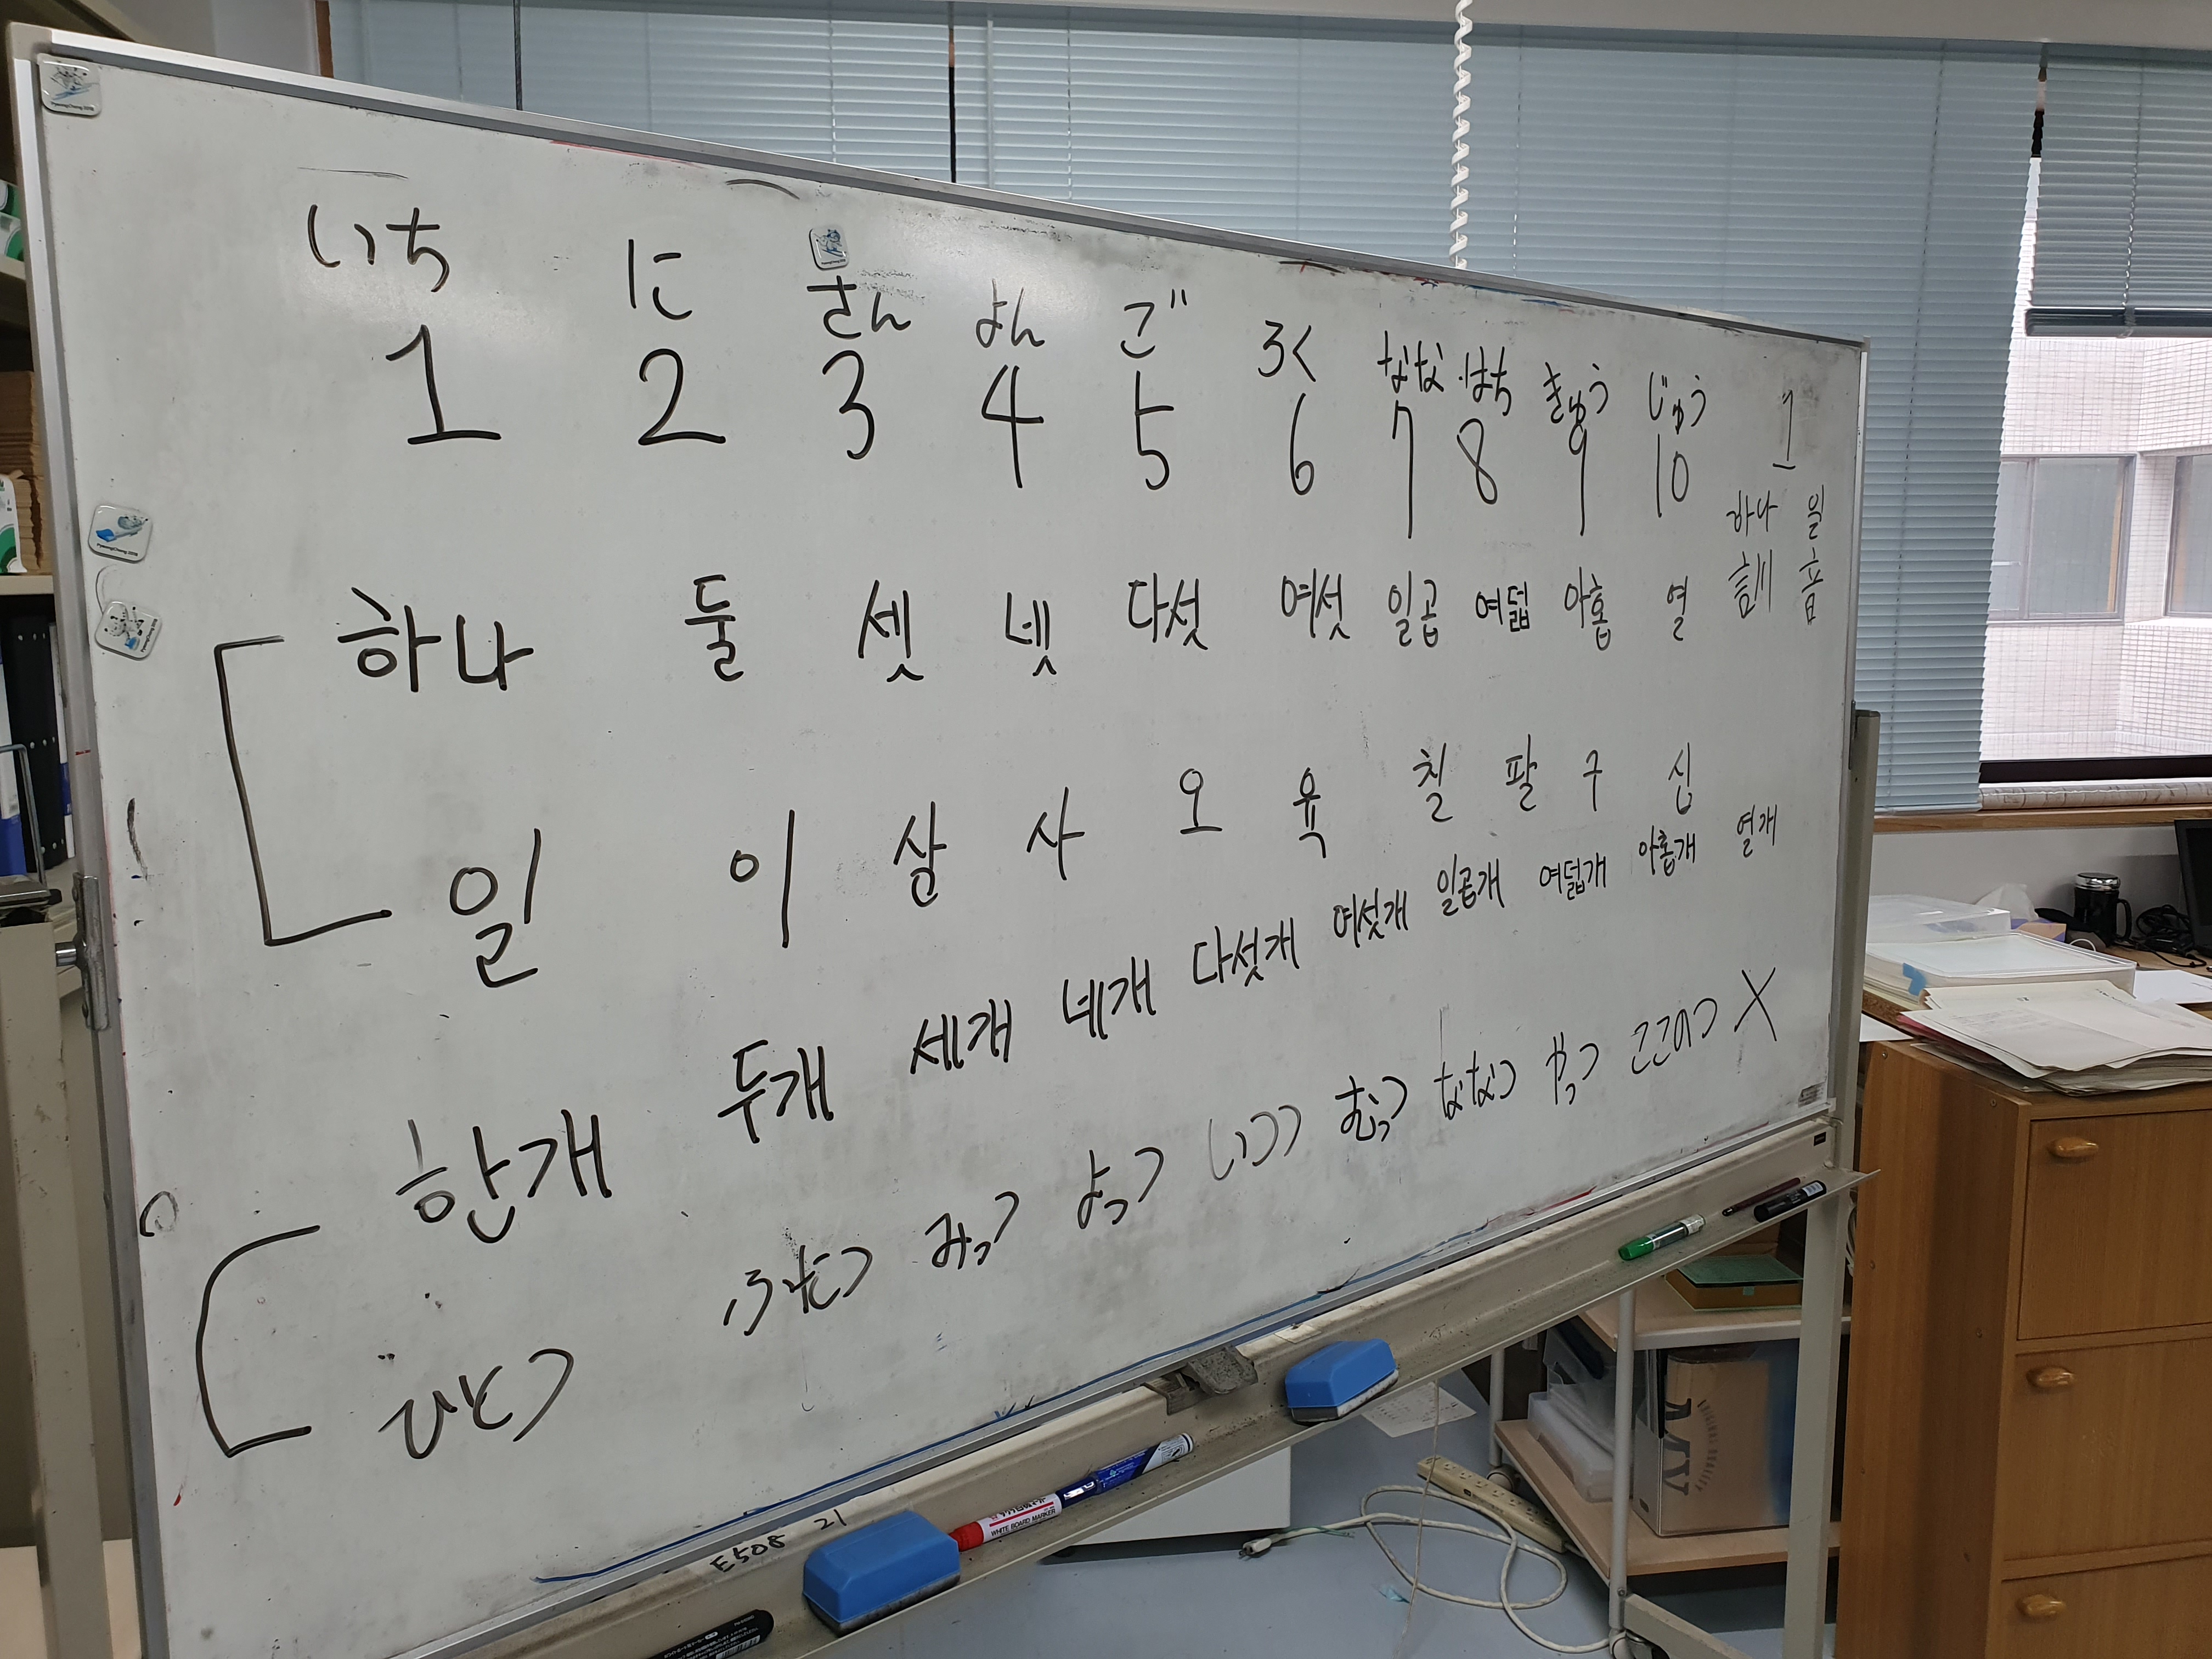 いち に さん よん ご ろく なな はち きゅう じゅう
1 2 3 4 5 6 7 8 9 10 1
하나 일
訓 音
하나 둘 셋 넷 다섯 여섯 일곱 여덟 아홉 열
일 이 삼 사 오 육 칠 팔 구 십
한개 두개 세개 네개 다섯개 여섯개 일곱개 여덟개 아홉개 열개
ひとつ ふたつ みっつ よっつ いつつ むっつ ななつ やっつ ここのつ X
WHITE BOARD MARKER
E508 21